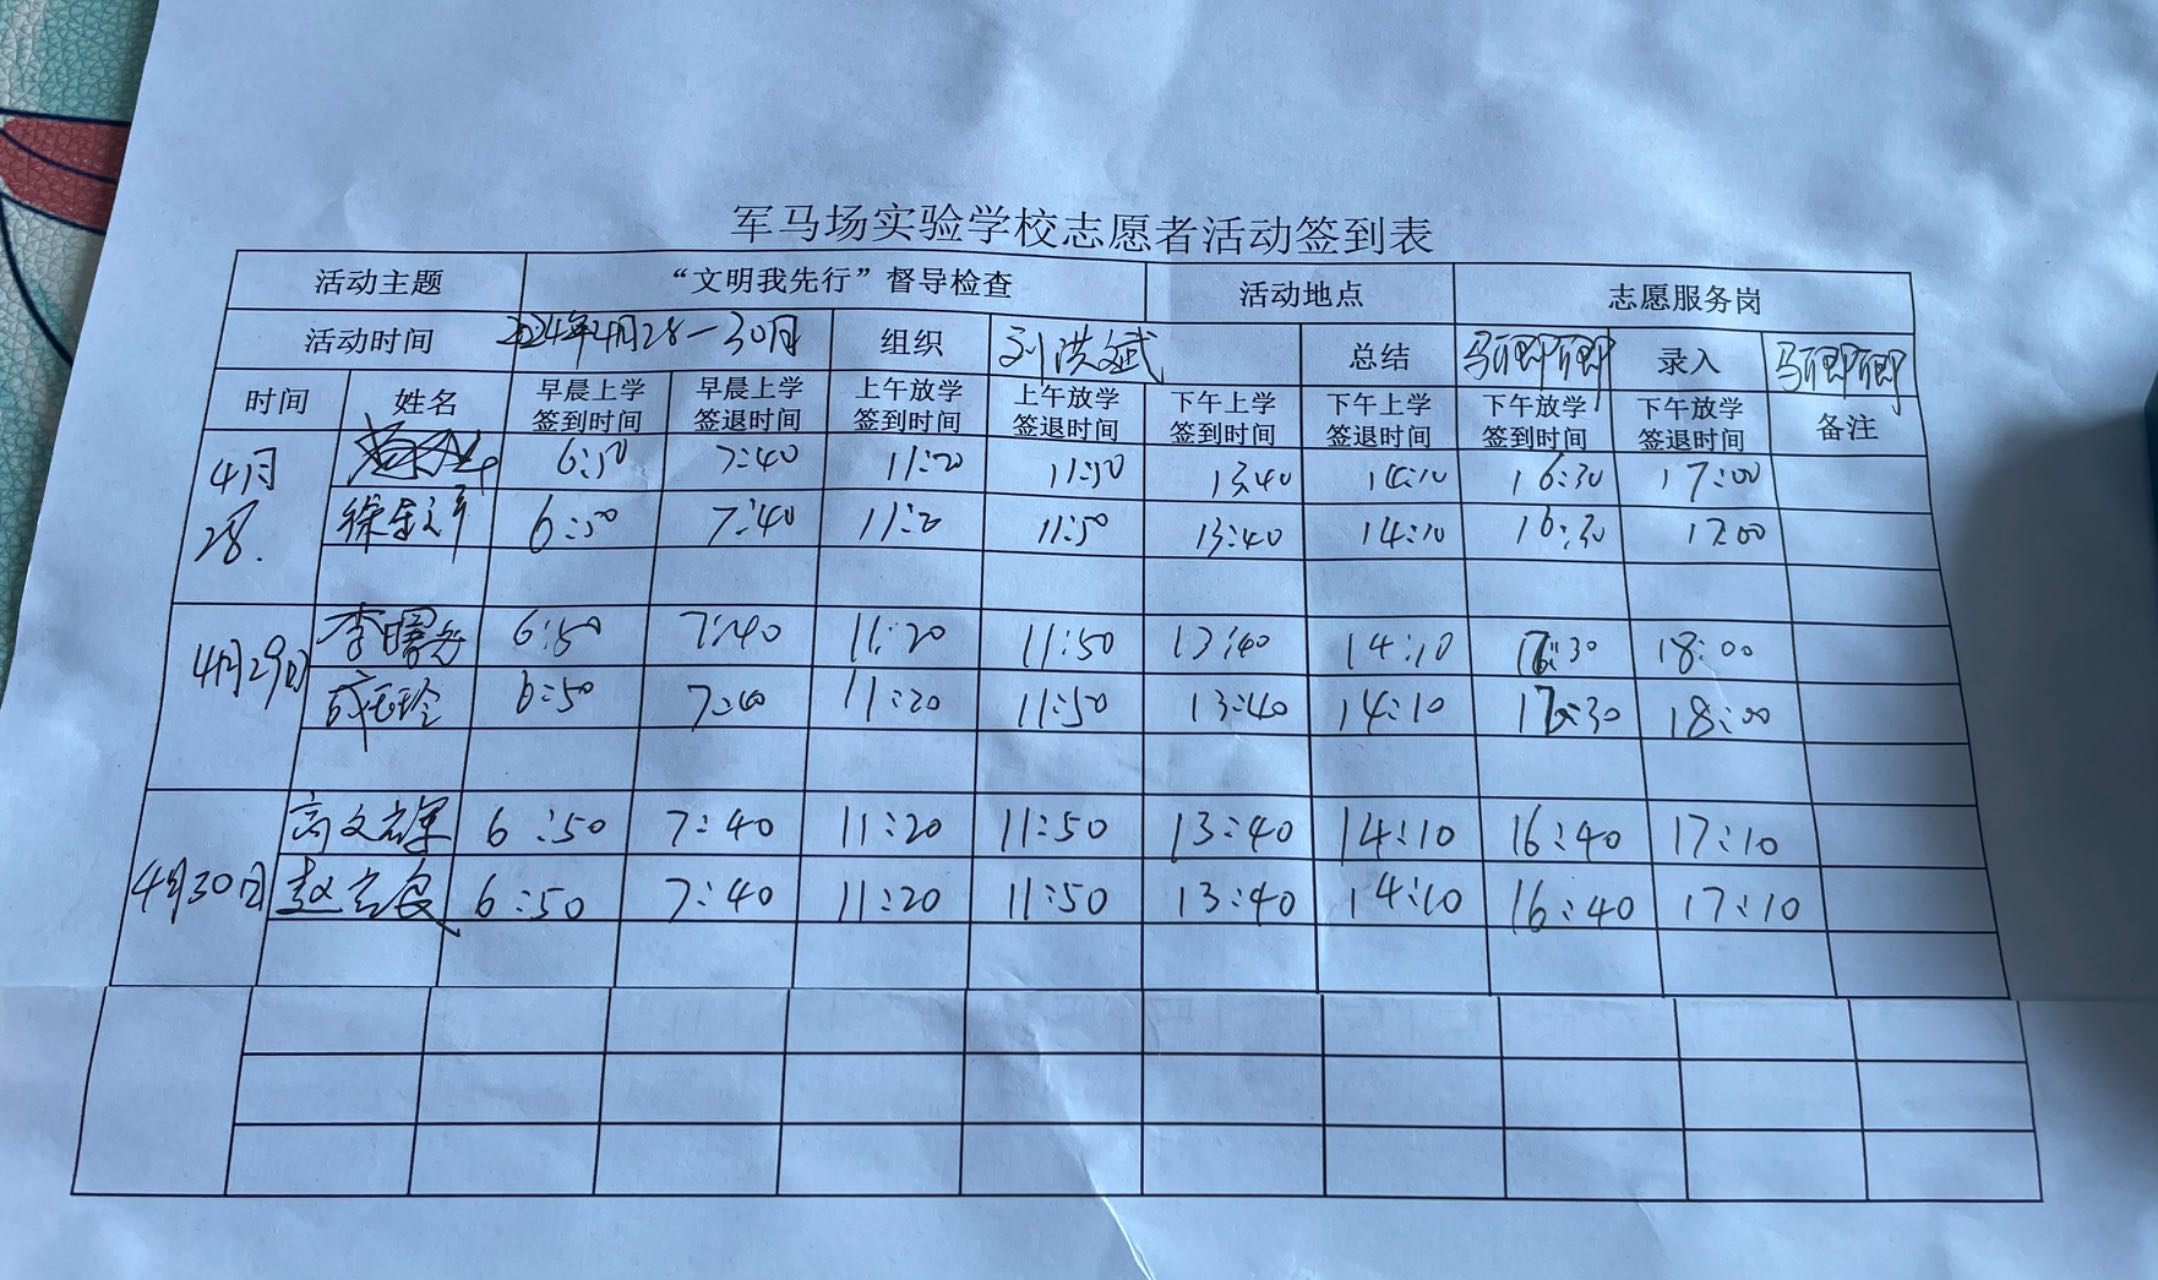 军马场实验学校志愿者活动签到表
活动主题 “文明我先行”督导检查 活动地点 志愿服务岗
活动时间 2024年4月28-30日 组织 刘洪斌 总结 马卿卿 录入 马卿卿
时间 姓名 早晨上学签到时间 早晨上学签退时间 上午放学签到时间 上午放学签退时间 下午上学签到时间 下午上学签退时间 下午放学签到时间 下午放学签退时间 备注
4月28. 6:50 7:40 11:20 11:50 13:40 14:10 16:30 17:00
徐 6:50 7:40 11:20 11:50 13:40 14:10 16:30 17:00
4月29日 李曙光 6:50 7:40 11:20 11:50 13:40 14:10 17:30 18:00
6:50 7:40 11:20 11:50 13:40 14:10 17:30 18:00
4月30日 高文军 6:50 7:40 11:20 11:50 13:40 14:10 16:40 17:10
赵吉良 6:50 7:40 11:20 11:50 13:40 14:10 16:40 17:10